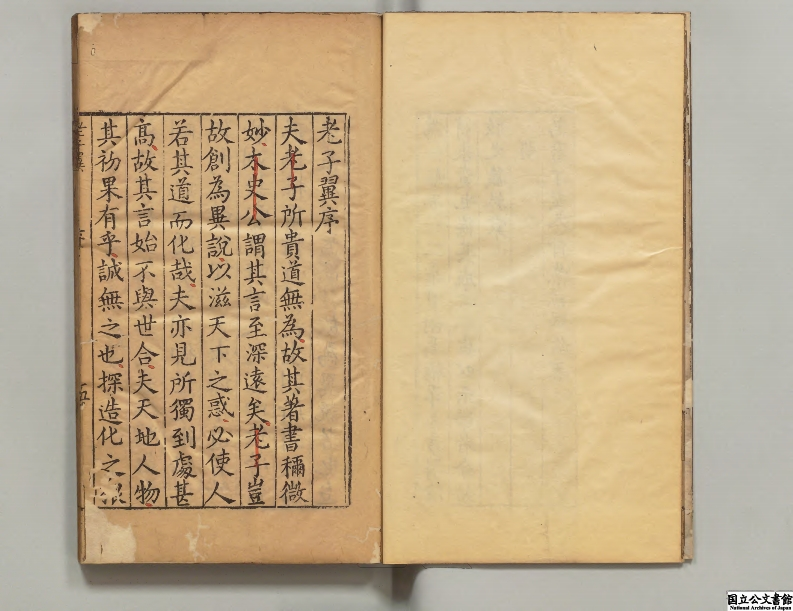 老子翼序
夫老子所貴道無為故其著書稱微
妙太史公謂其言至深遠矣老子豈
故創為異說以滋天下之惑必使人
若其道而化哉夫亦見所獨到處甚
高故其言始不與世合夫天地人物
其初果有乎誠無之也探造化之根
国立公文書館
National Archives of Japan